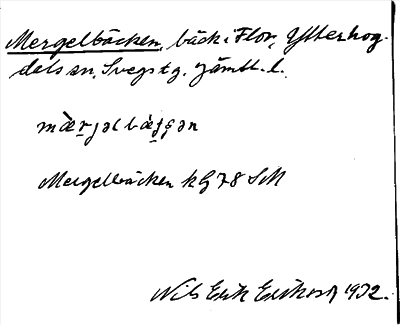 Mergelbäcken, bäck i Flor, Ytterhog-
dals sn, Svegs tg. Jämtl. l.
Mergelbäcken kG 78 SM
Nils Erik Eriksson 1932.